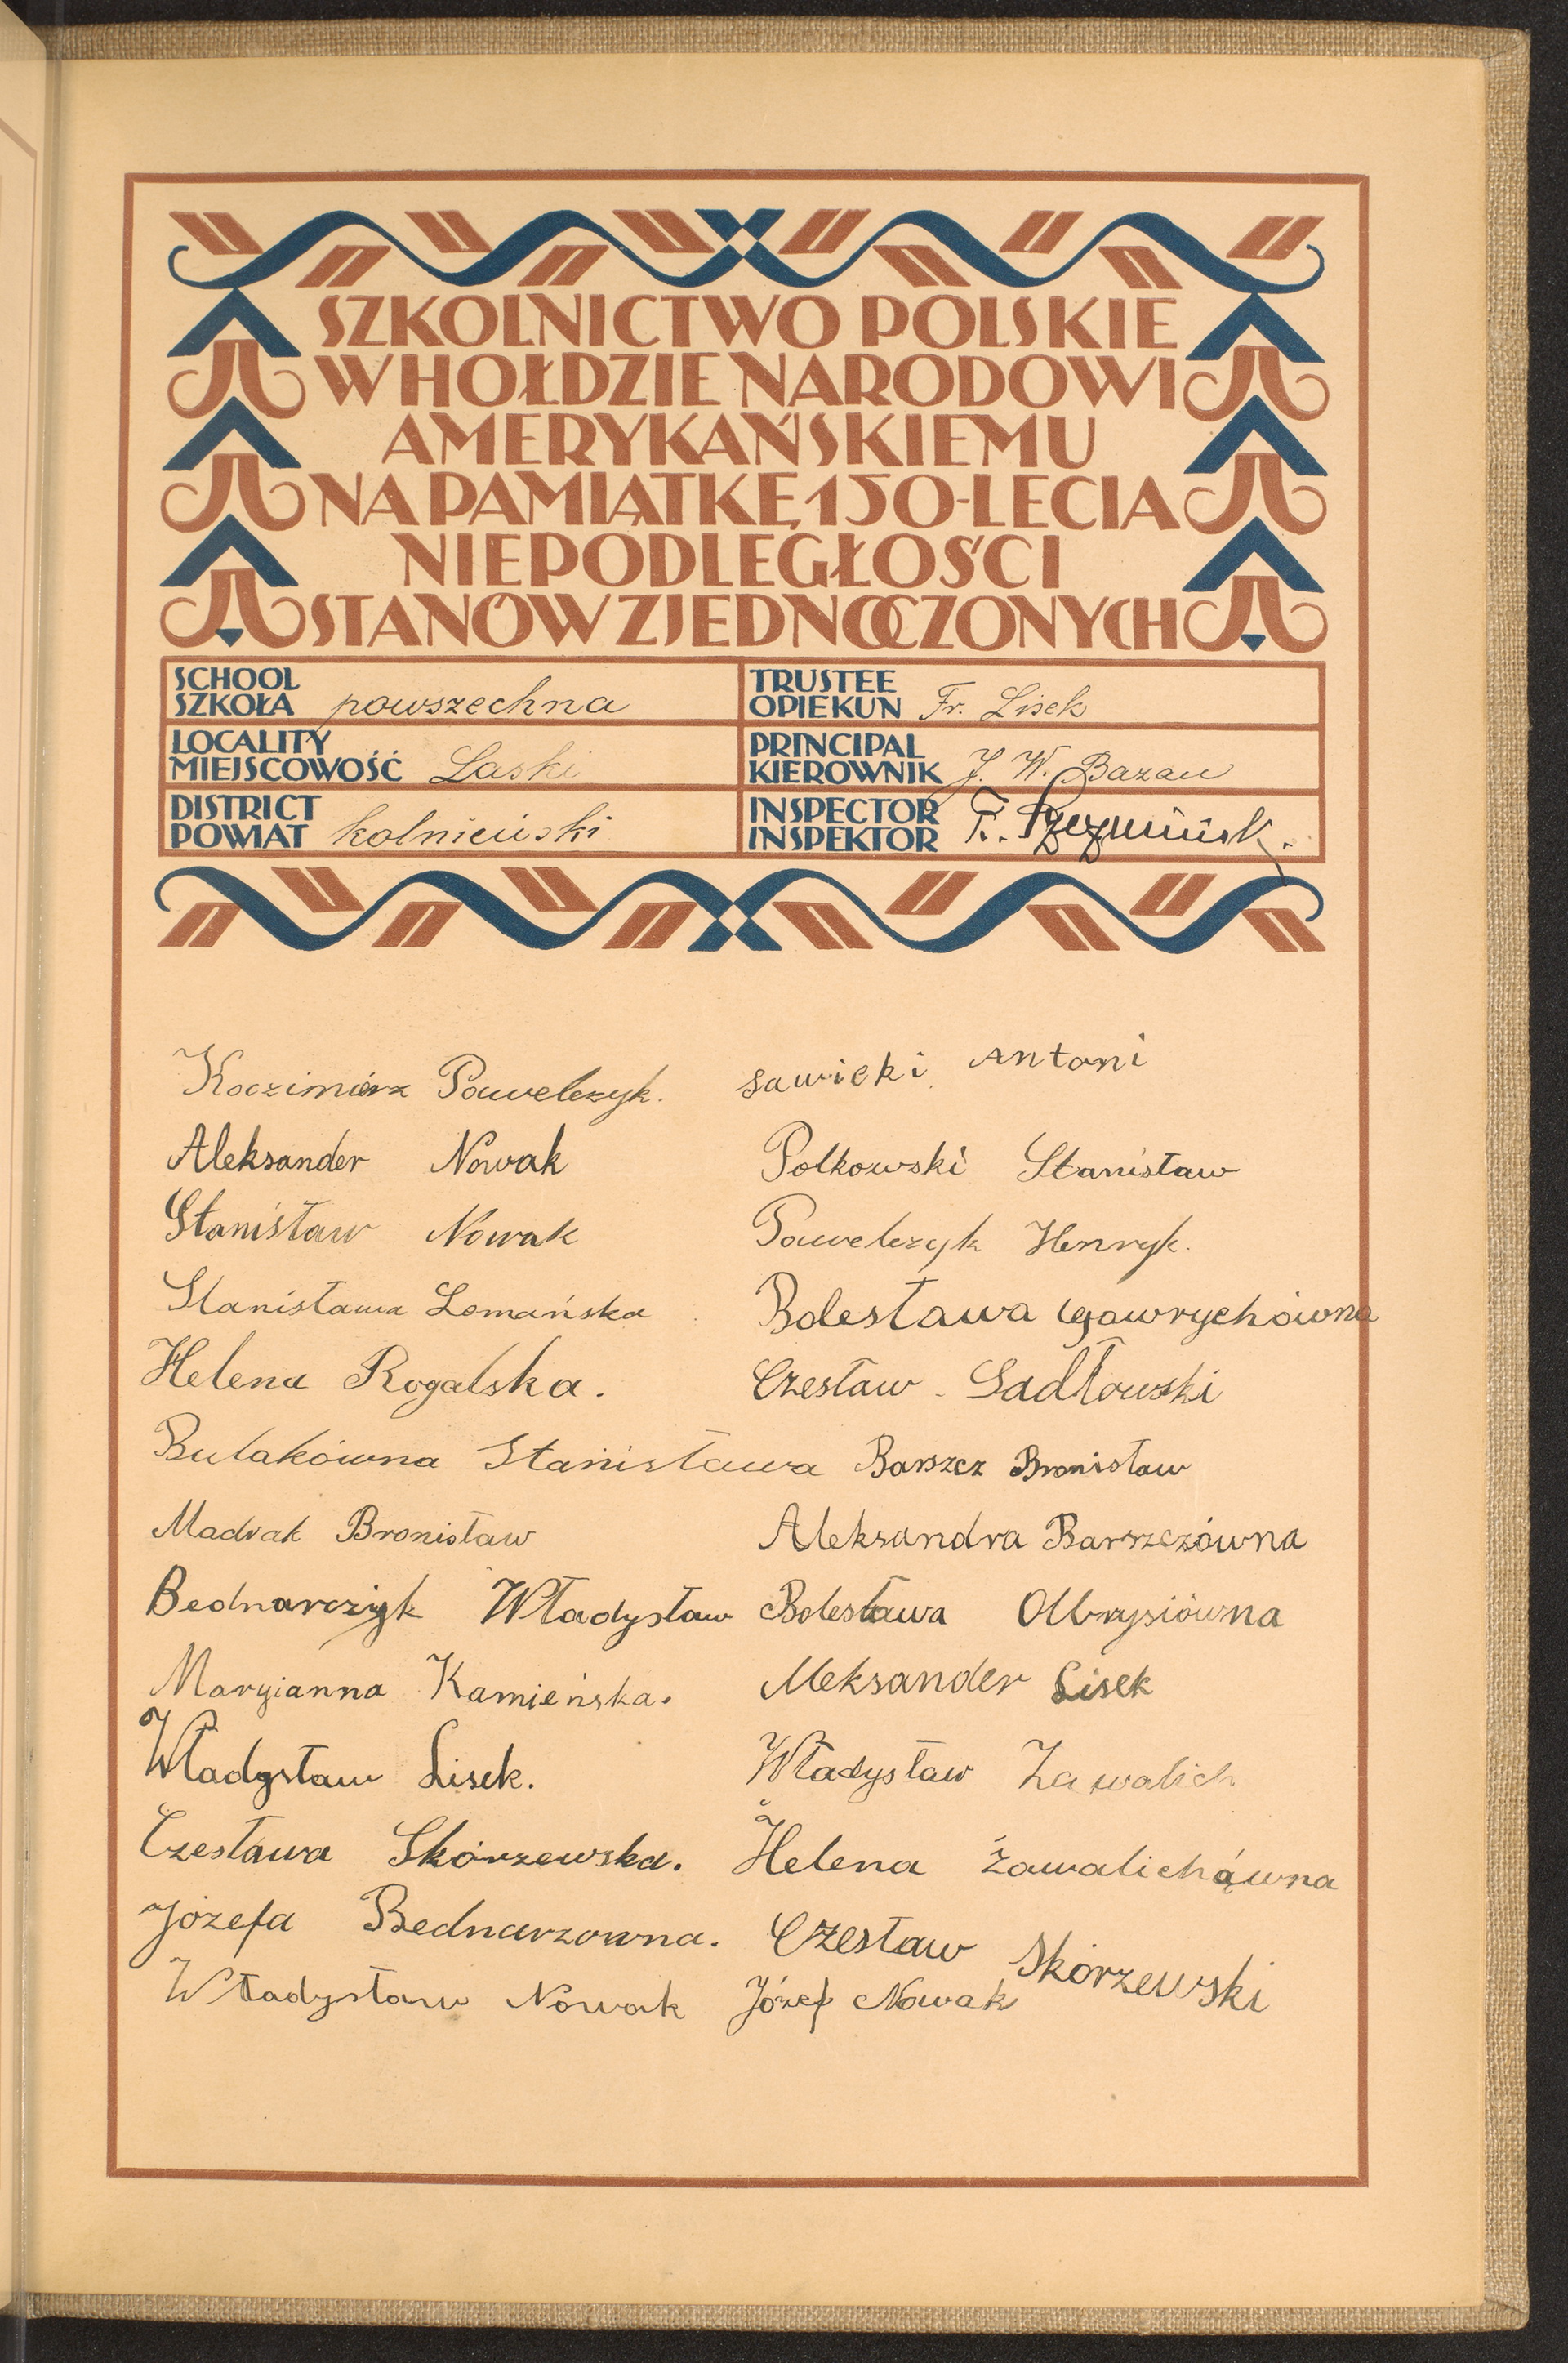 SZKOLNICTWO POLSKIE
W HOŁDZIE NARODOWI
AMERYKAŃSKIEMU
NA PAMIĄTKĘ 150-LECIA
NIEPODLEGŁOŚCI
STANÓW ZJEDNOCZONYCH
SCHOOL
SZKOŁA powszechna
TRUSTEE
OPIEKUN Fr. Lisek
LOCALITY
MIEJSCOWOŚĆ Laski
PRINCIPAL
KIEROWNIK J. W. Bazan
DISTRICT
POWIAT kolnieński
INSPECTOR
INSPEKTOR
Kazimierz Pawelczyk.
Sawicki Antoni
Aleksander Nowak
Polkowski Stanisław
Stanisław Nowak
Pawelczyk Henryk.
Stanisława Lomańska
Bolesława Gawrychówna
Helena Rogalska.
Czesław Sadłowski
Bulakówna Stanisława
Barszcz Bronisław
Madrak Bronisław
Aleksandra Barszczówna
Bednarczyk Władysław
Bolesława Olbrysiówna
Maryianna Kamieńska.
Aleksander Lisek
Władysław Lisek.
Władysław Zawalich
Czesława Skórzewska.
Helena Zawalichówna
Józefa Bednarzowna.
Czesław Skorzewski
Władysław Nowak
Józef Nowak